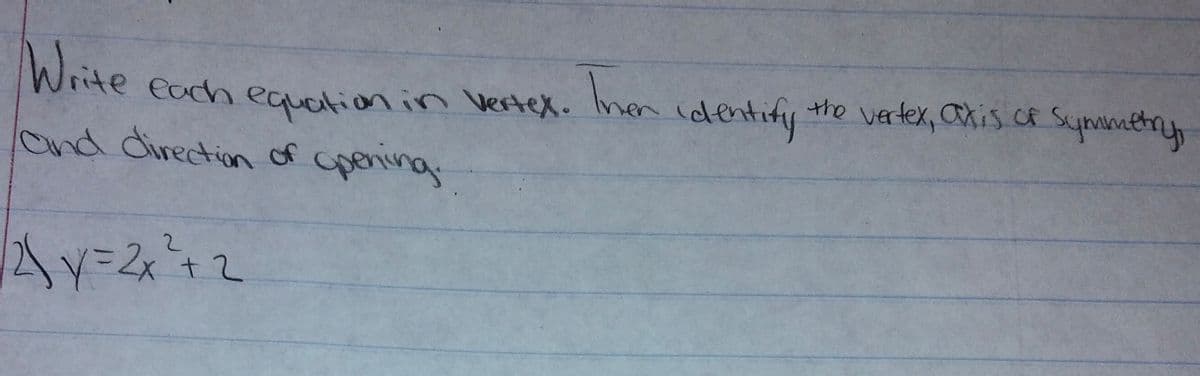 Write each equation in vertex. Then identify the vertex, axis of symmetry,
and direction of opening.
2) y=2x²+2